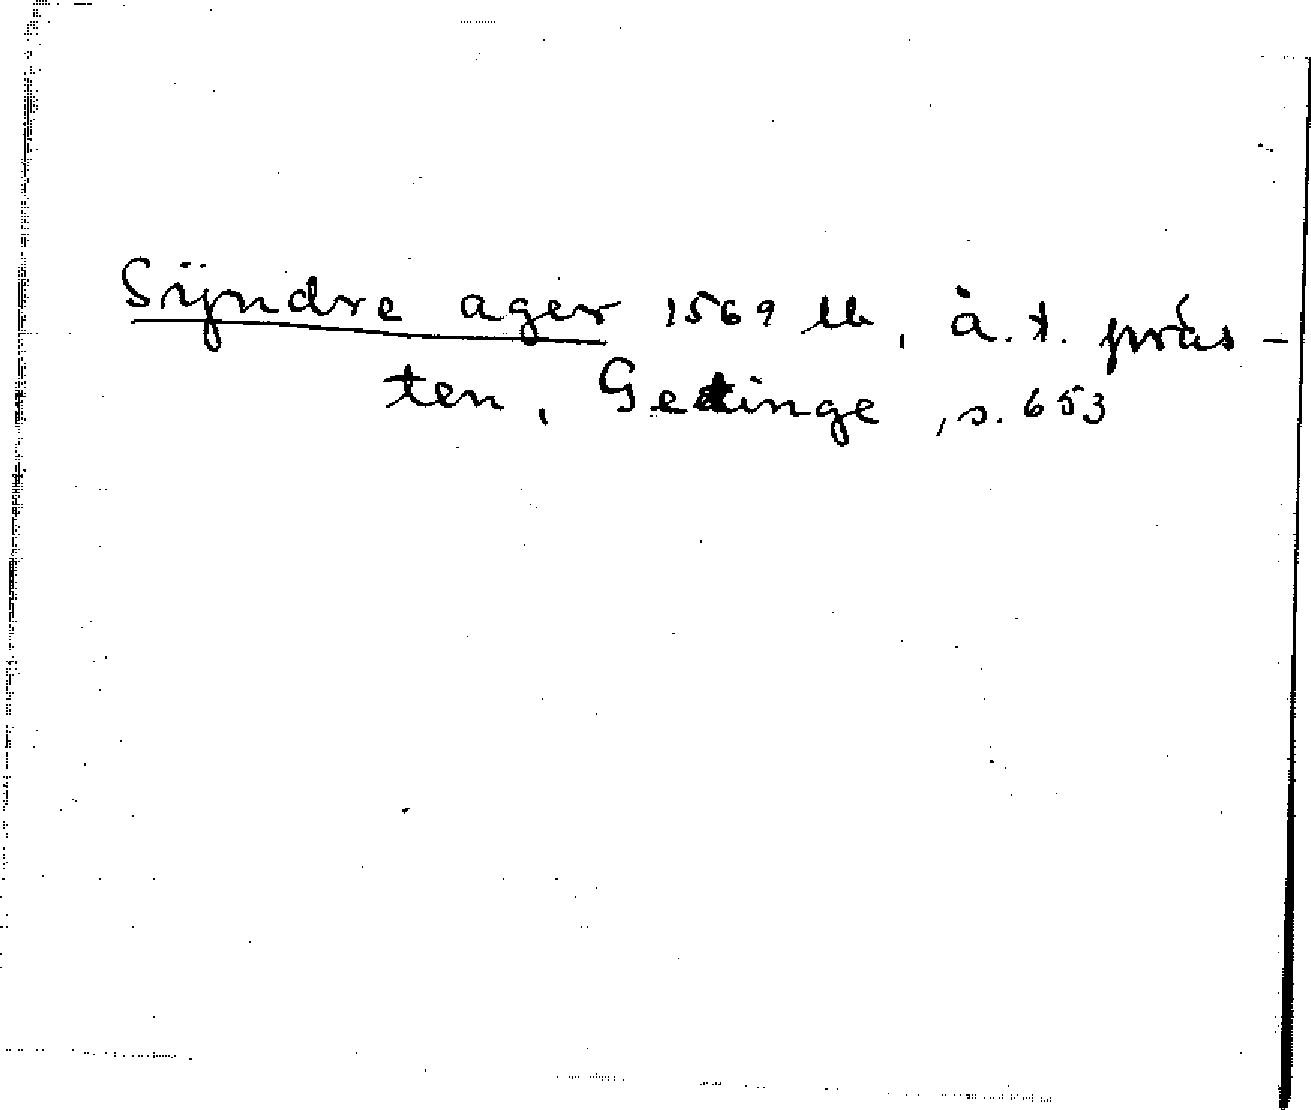 Sÿndre ager 1569 lb, å.t. präs-
ten, Getinge, s. 653